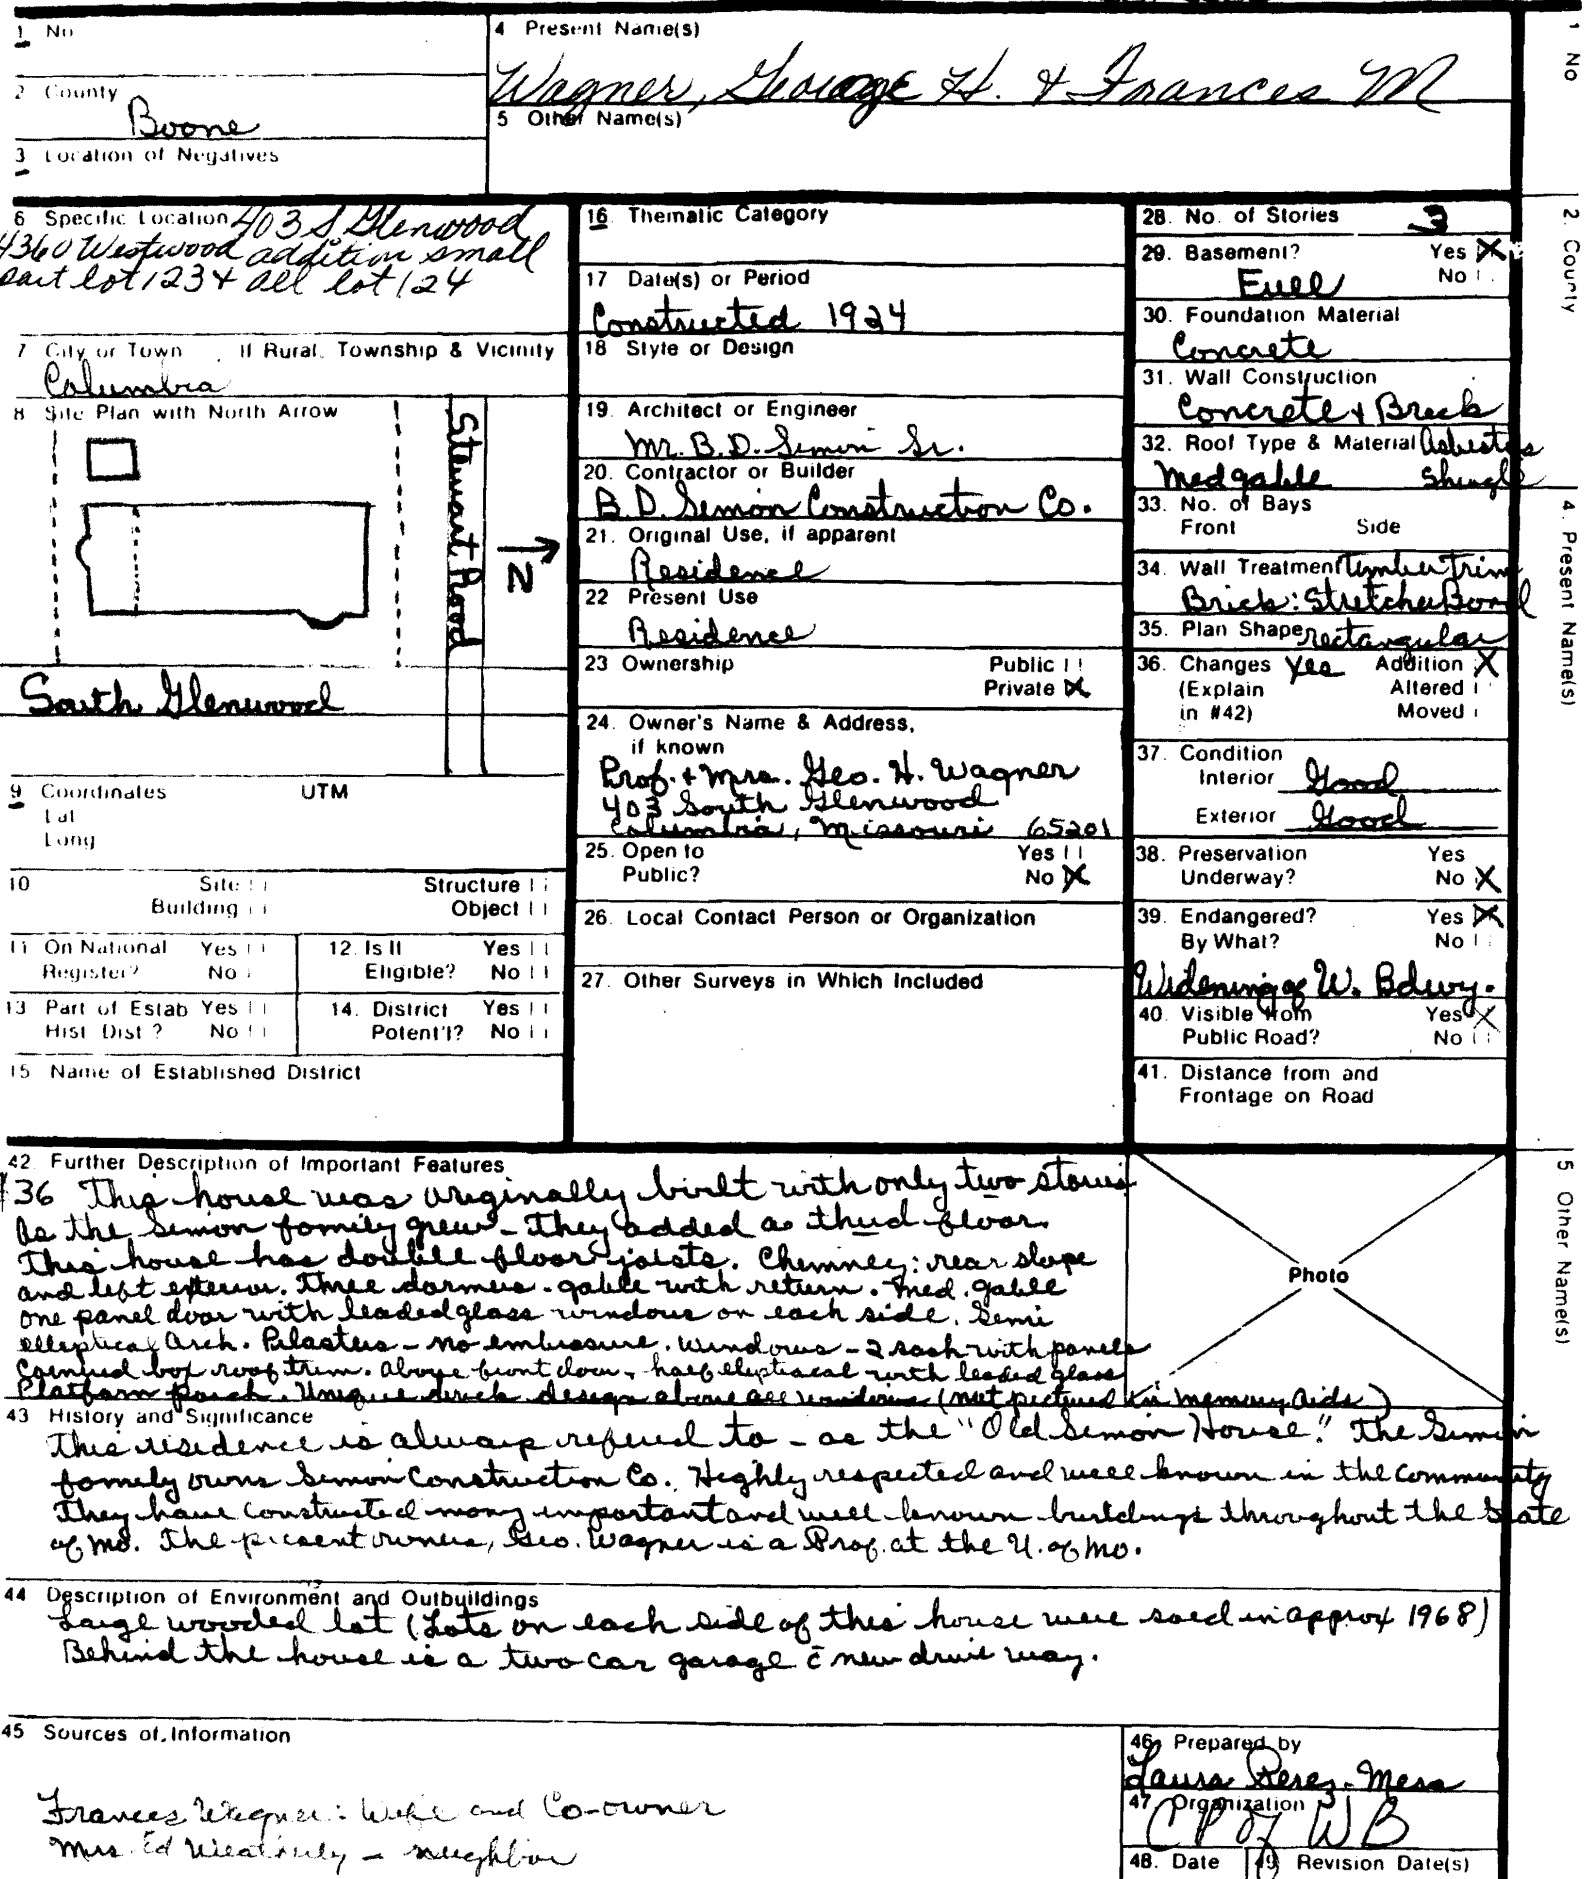 1 No
4 Present Name(s)
Wagner, George H. & Frances M
2 County
Boone
5 Other Name(s)
3 Location of Negatives
6 Specific Location 403 S Glenwood
4360 Westwood addition small
part lot 123 & all lot 124
7 City or Town If Rural, Township & Vicinity
Columbia
8 Site Plan with North Arrow
Stewart Road
N
South Glenwood
9 Coordinates UTM
Lat
Long
10 Site Structure
Building Object
11 On National Register? Yes No
12. Is It Eligible? Yes No
13 Part of Estab Hist Dist? Yes No
14. District Potent'l? Yes No
15 Name of Established District
16 Thematic Category
17 Date(s) or Period
Constructed 1924
18 Style or Design
19. Architect or Engineer
Mr. B.D. Simon Sr.
20. Contractor or Builder
B.D. Simon Construction Co.
21. Original Use, if apparent
Residence
22 Present Use
Residence
23 Ownership Public
Private X
24. Owner's Name & Address,
if known
Prof. & Mrs. Geo. H. Wagner
403 South Glenwood
Columbia, Missouri 65201
25. Open to Yes
Public? No X
26. Local Contact Person or Organization
27. Other Surveys in Which Included
28. No. of Stories 3
29. Basement? Yes X
Full No
30. Foundation Material
Concrete
31. Wall Construction
Concrete & Brick
32. Roof Type & Material Asbestos
Med gable Shingle
33. No. of Bays
Front Side
34. Wall Treatment Timber Trim
Brick: Stretcher Bond
35. Plan Shape rectangular
36. Changes Yes Addition X
(Explain Altered
in #42) Moved
37. Condition
Interior Good
Exterior Good
38. Preservation Yes
Underway? No X
39. Endangered? Yes X
By What? No
Widening of W. Bdwy.
40. Visible from Yes X
Public Road? No
41. Distance from and
Frontage on Road
42 Further Description of Important Features
#36 This house was originally built with only two stories
As the Simon family grew - they added a third floor.
This house has double floor joists. Chimney: rear slope
and left exterior. Three dormers - gable with return. Med. gable
one panel door with leaded glass windows on each side. Semi
elliptical Arch. Pilasters - no embrasure. Windows - 2 sash with panels
Corniced box roof trim. Above front door - half elliptical with leaded glass
Platform porch. Unique brick design above all windows (not pictured in memory aids)
Photo
43 History and Significance
This residence is always refered to - as the "Old Simon House." The Simon
family owns Simon Construction Co. Highly respected and well known in the community
They have constructed many important and well known buildings throughout the State
of Mo. The present owner, Geo. Wagner is a Prof. at the U. of Mo.
44 Description of Environment and Outbuildings
Large wooded lot (Lots on each side of this house were sold in approx 1968)
Behind the house is a two car garage c̄ new drive way.
45 Sources of Information
Frances Wagner: Wife and Co-owner
Mrs. Ed - neighbor
46. Prepared by
Laura Perez-Mesa
47 Organization
48. Date 49 Revision Date(s)
1 No
2. County
4. Present Name(s)
5 Other Name(s)